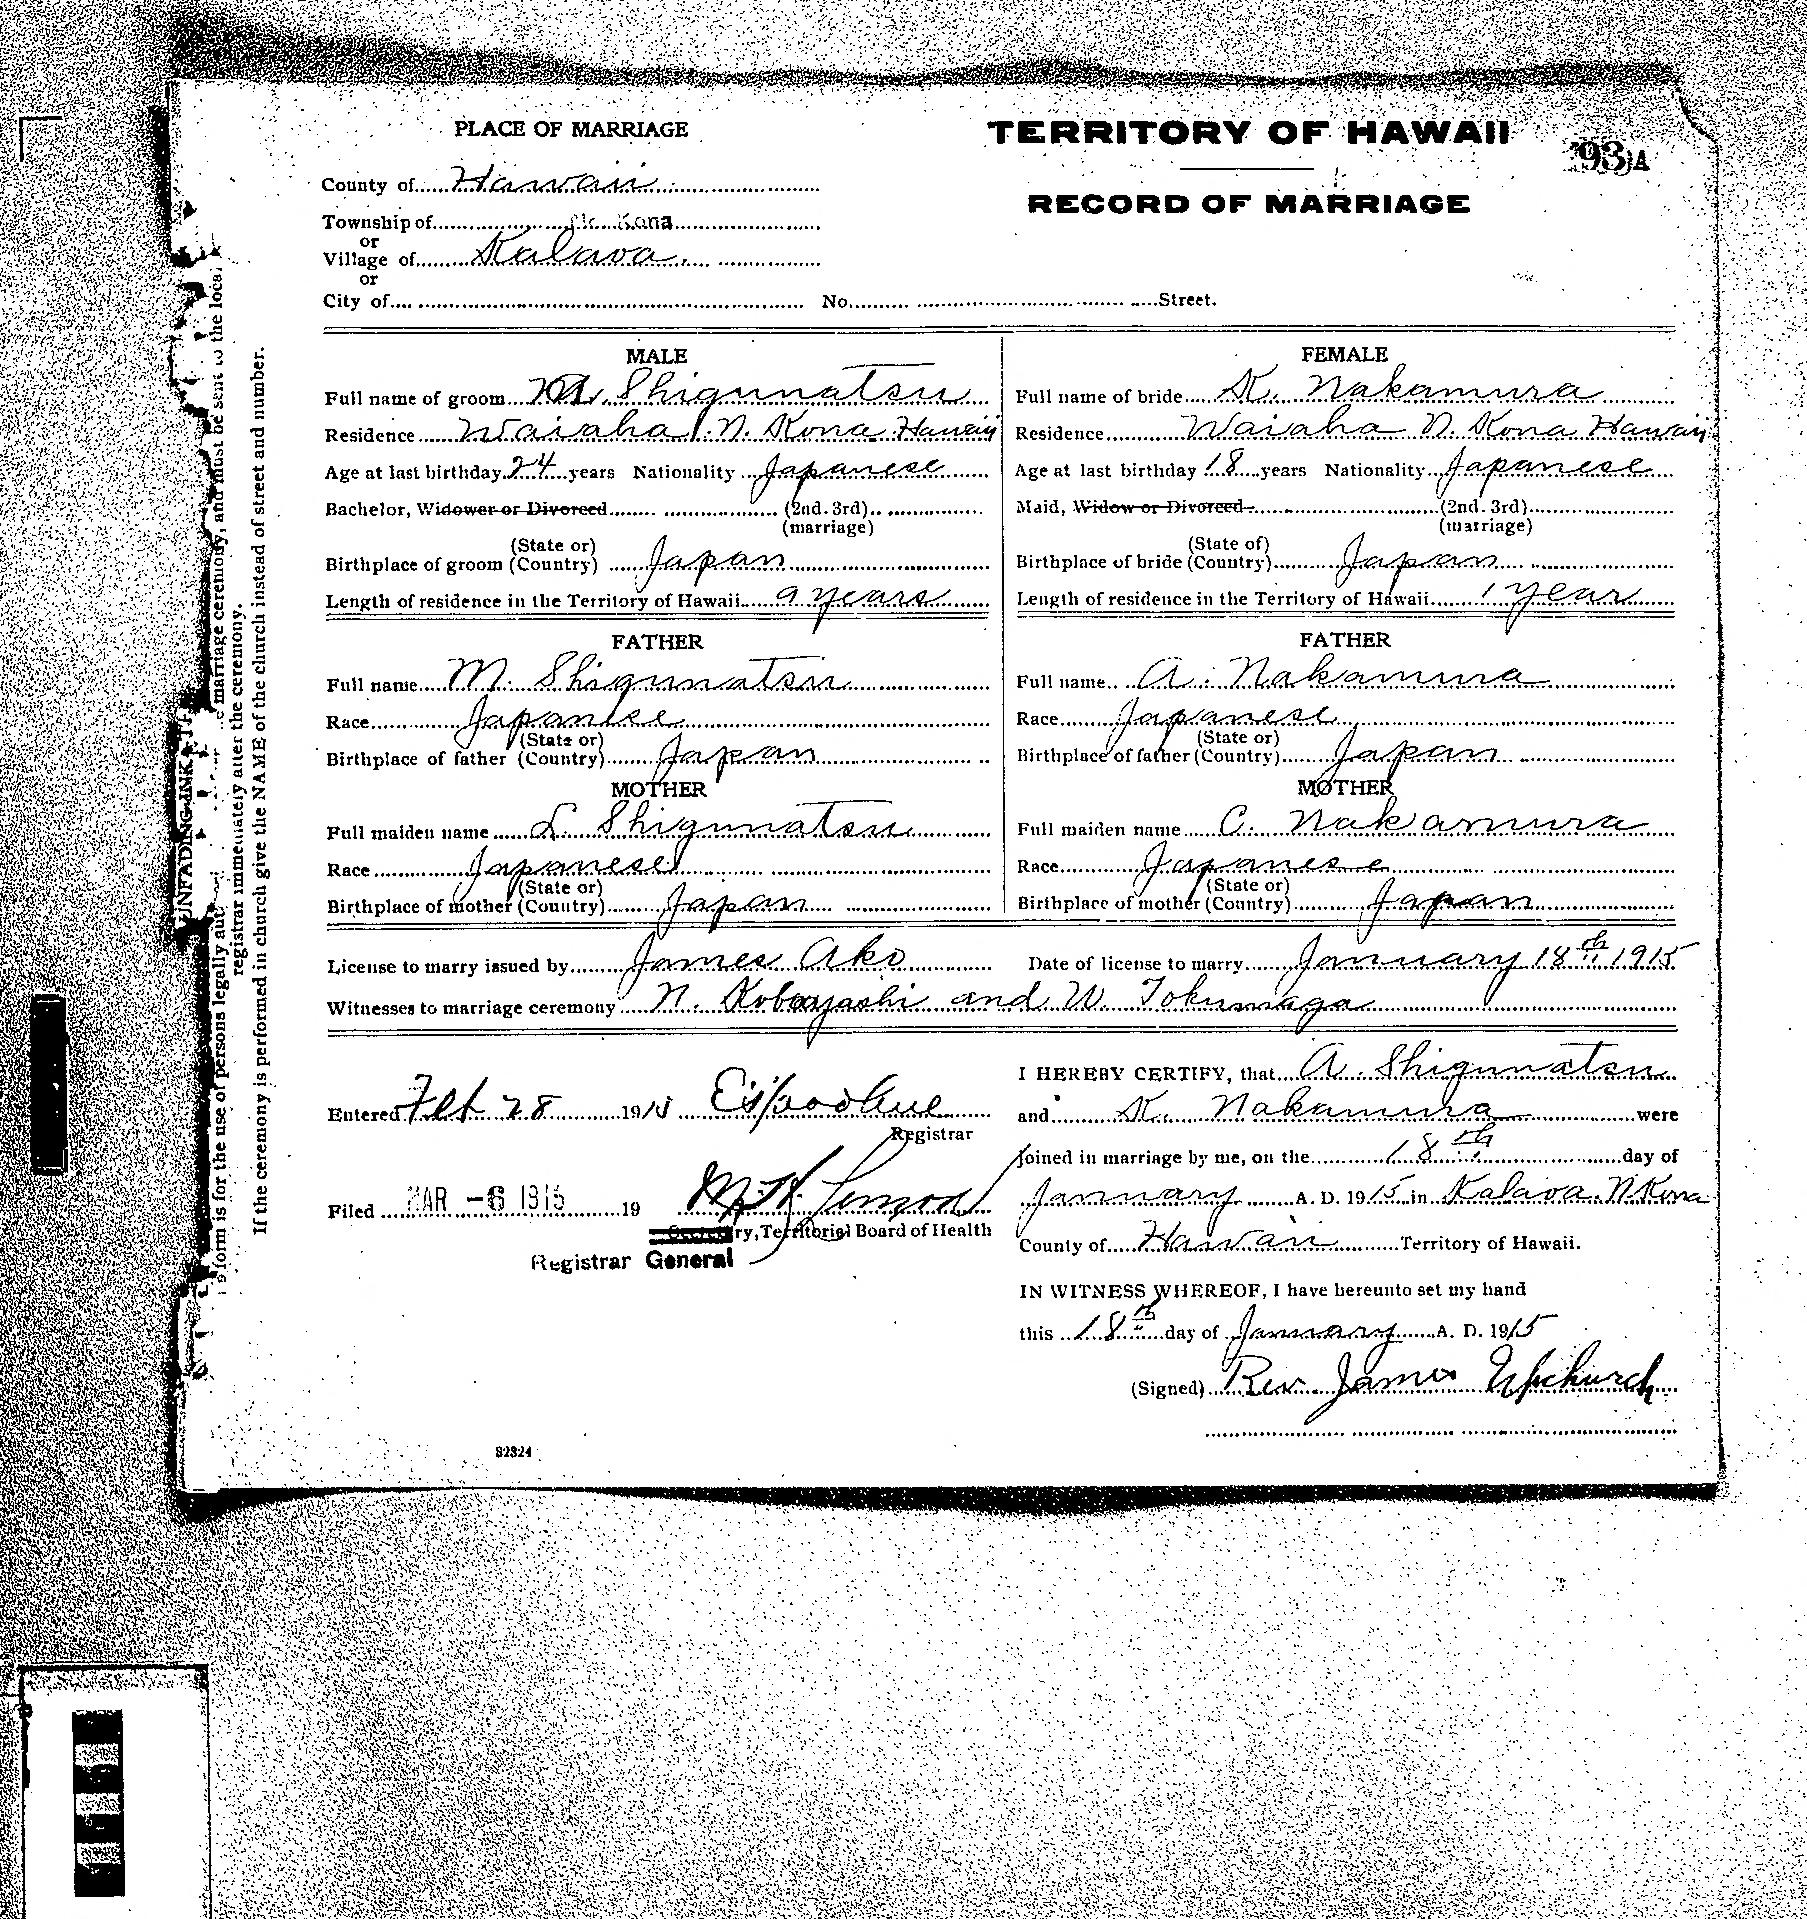 PLACE OF MARRIAGE
TERRITORY OF HAWAII
93 A
County of Hawaii
RECORD OF MARRIAGE
Township of N. Kona
or
Village of Kalaoa.
or
City of No. Street.
MALE
Full name of groom Shigunatsu
Residence Waiaha N. Kona Hawaii
Age at last birthday 24 years Nationality Japanese
Bachelor, Widower or Divorced (2nd. 3rd)
(marriage)
(State or)
Birthplace of groom (Country) Japan
Length of residence in the Territory of Hawaii 9 years
FATHER
Full name M. Shigunatsu
Race Japanese
(State or)
Birthplace of father (Country) Japan
MOTHER
Full maiden name L. Shigunatsu
Race Japanese
(State or)
Birthplace of mother (Country) Japan
FEMALE
Full name of bride K. Nakamura
Residence Waiaha N. Kona Hawaii
Age at last birthday 18 years Nationality Japanese
Maid, Widow or Divorced (2nd. 3rd)
(marriage)
(State of)
Birthplace of bride (Country) Japan
Length of residence in the Territory of Hawaii 1 year
FATHER
Full name A. Nakamura
Race Japanese
(State or)
Birthplace of father (Country) Japan
MOTHER
Full maiden name C. Nakamura
Race Japanese
(State or)
Birthplace of mother (Country) Japan
License to marry issued by James Ako Date of license to marry January 18th 1915
Witnesses to marriage ceremony N. Kobayashi and W. Tokunaga
Entered Feb 28 1915
Registrar
Filed MAR -6 1915 19
ry, Territorial Board of Health
Registrar General
I HEREBY CERTIFY, that A. Shigunatsu
and K. Nakamura were
joined in marriage by me, on the 18th day of
January A. D. 1915 in Kalaoa. N Kona
County of Hawaii Territory of Hawaii.
IN WITNESS WHEREOF, I have hereunto set my hand
this 18th day of January A. D. 1915
(Signed) Rev. James Upchurch
82324
UNFADING INK
form is for the use of persons legally marriage ceremony, and must be sent to the local
registrar immediately after the ceremony.
If the ceremony is performed in church give the NAME of the church instead of street and number.